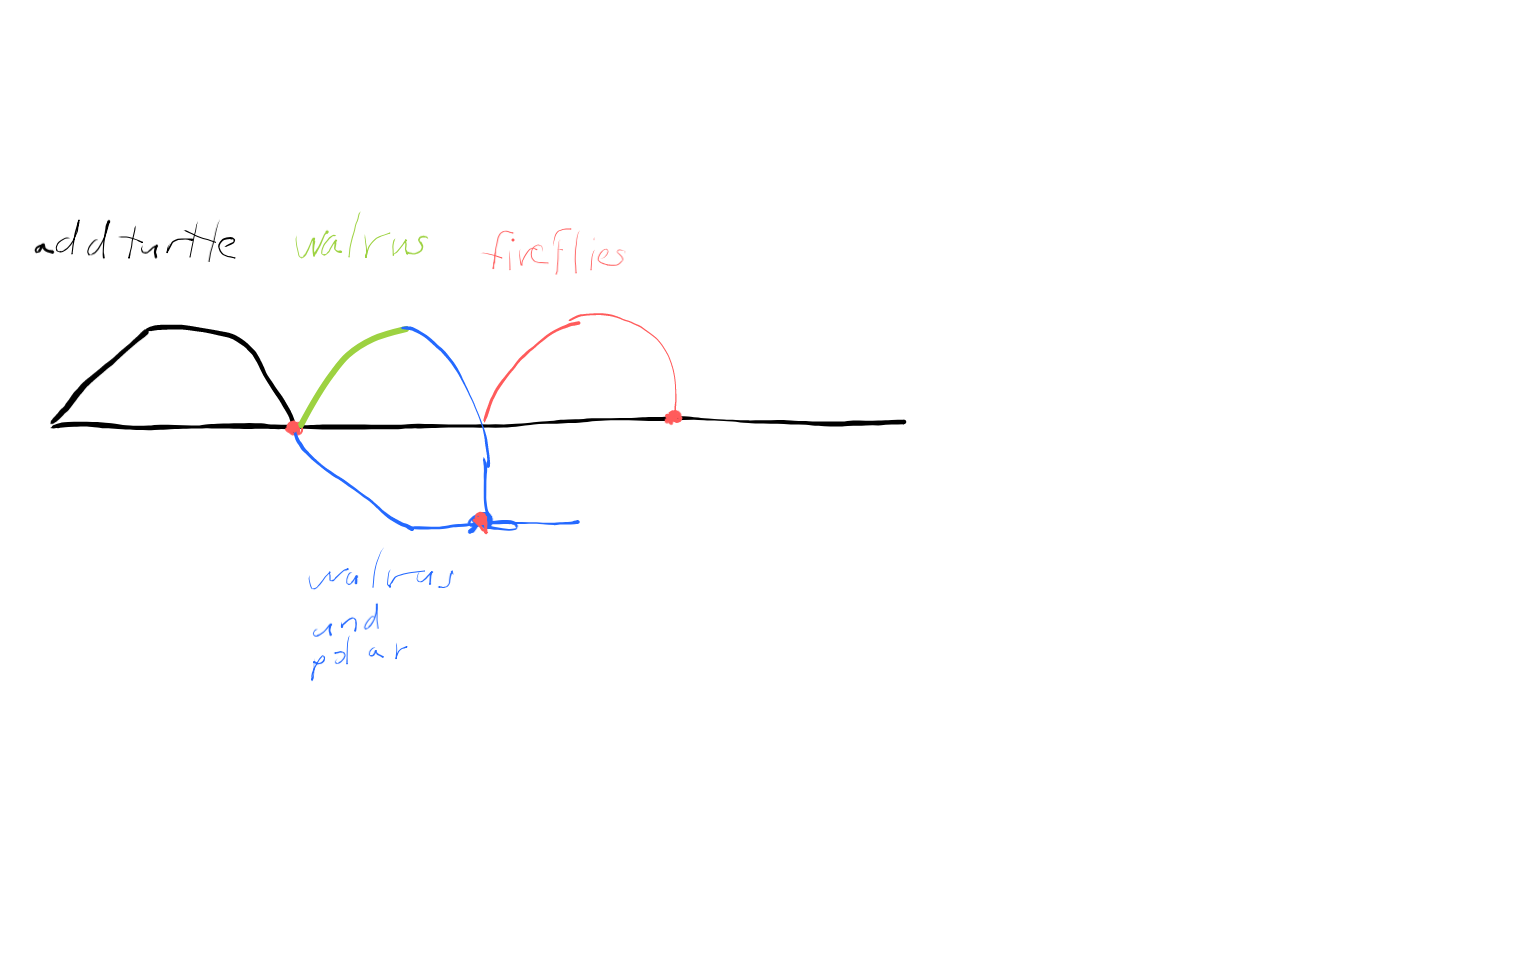 add turtle walrus fireflies
walrus
and
polar